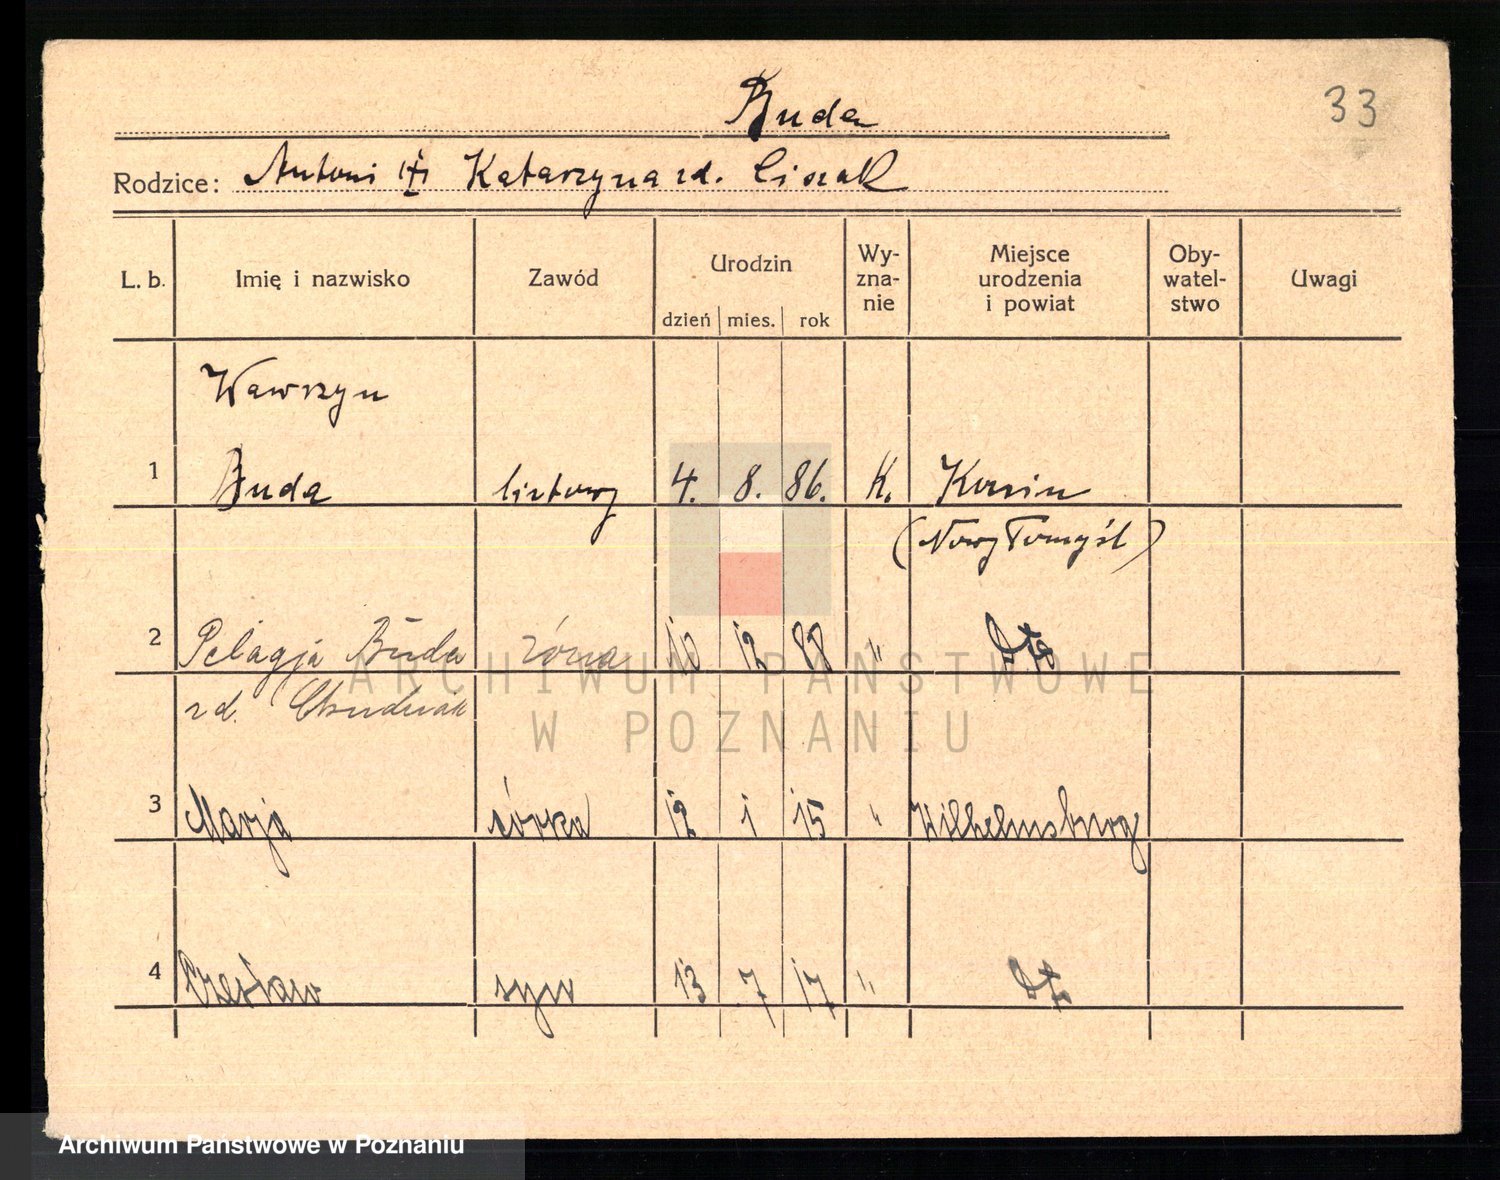 33
Buda
Rodzice: Antoni i Katarzyna zd. Ciszak
L. b. Imię i nazwisko Zawód Urodzin Wy- Miejsce Oby- Uwagi
zna- urodzenia watel-
dzień mies. rok nie i powiat stwo
Wawrzyn
1 Buda listowy 4. 8. 86. K.
(Nowy Tomyśl)
2 Pelagja Buda żona 12 88 " dto
zd.
3 Marja córka 12 1 15 " Wilhelmsburg
4 Czesław syn 13 7 17 " dto
ARCHIWUM PAŃSTWOWE
W POZNANIU
Archiwum Państwowe w Poznaniu